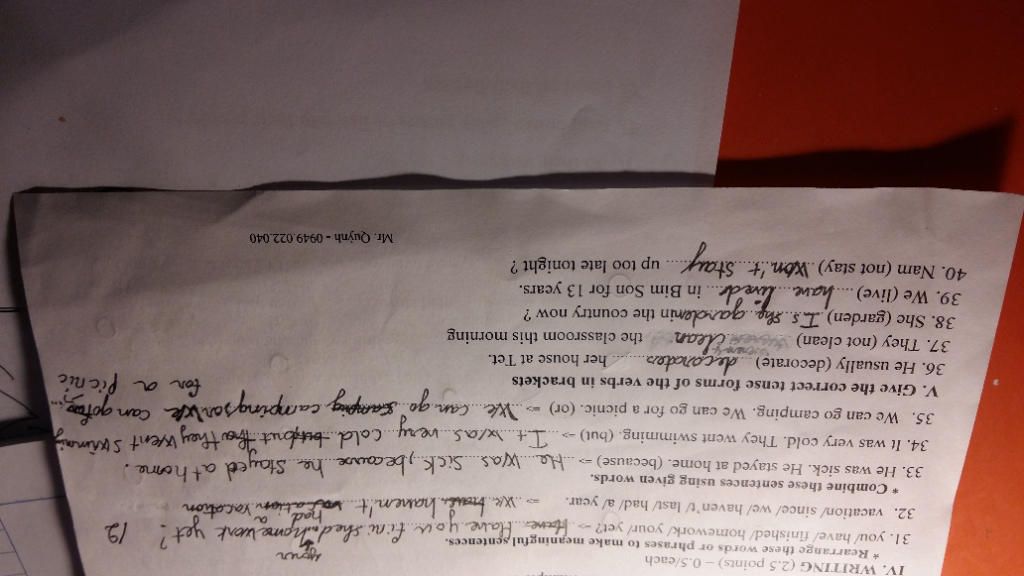 IV. WRITING (2.5 points) – 0.5/each
* Rearrange these words or phrases to make meaningful sentences.
your
31. you/ have/ finished/ homework/ your/ yet? => Have you finished homework yet?
32. vacation/ since/ we/ haven't/ last/ had/ a/ year. => we haven't had a vacation
* Combine these sentences using given words.
33. He was sick. He stayed at home. (because) => He was sick, because he stayed at home.
34. It was very cold. They went swimming. (but) => It was very cold but they went swimming
35. We can go camping. We can go for a picnic. (or) => We can go camping or we can go
for a picnic
V. Give the correct tense forms of the verbs in brackets
36. He usually (decorate) decorates her house at Tet.
37. They (not) clean) clean the classroom this morning
38. She (garden) Is she garden in the country now ?
39. We (live) have lived in Bim Son for 13 years.
40. Nam (not stay) won't stay up too late tonight ?
Mr. Quỳnh - 0949.022.040